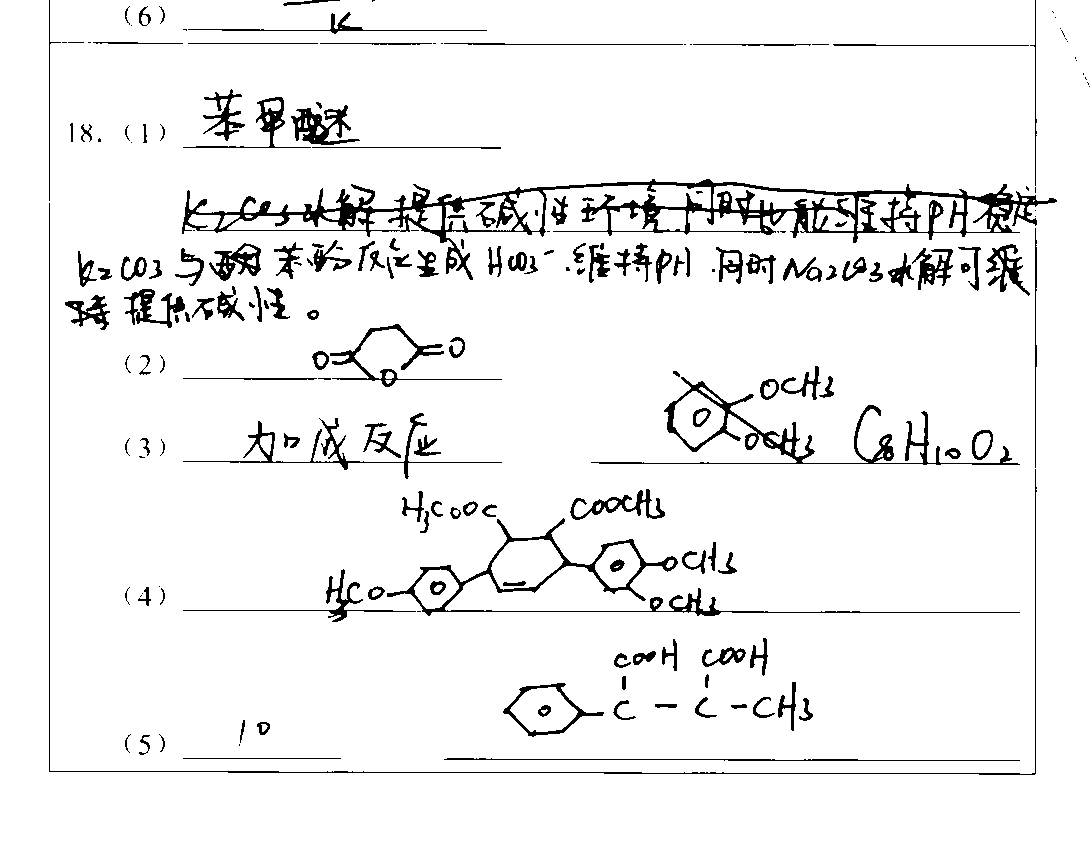 (6) K
18. (1) 苯甲醚
K₂CO₃水解提供碱性环境同时也能维持PH稳定
K₂CO3与苯酚反应生成HCO₃⁻.维持PH.同时Na₂CO₃水解可维
持提供碱性。
(2) O O O
(3) 加成反应 OCH3 OCH3 C₈H₁₀O₂
H₃COOC COOCH3
(4) H₃CO OCH3 OCH3
COOH COOH
C - C - CH3
(5) 10